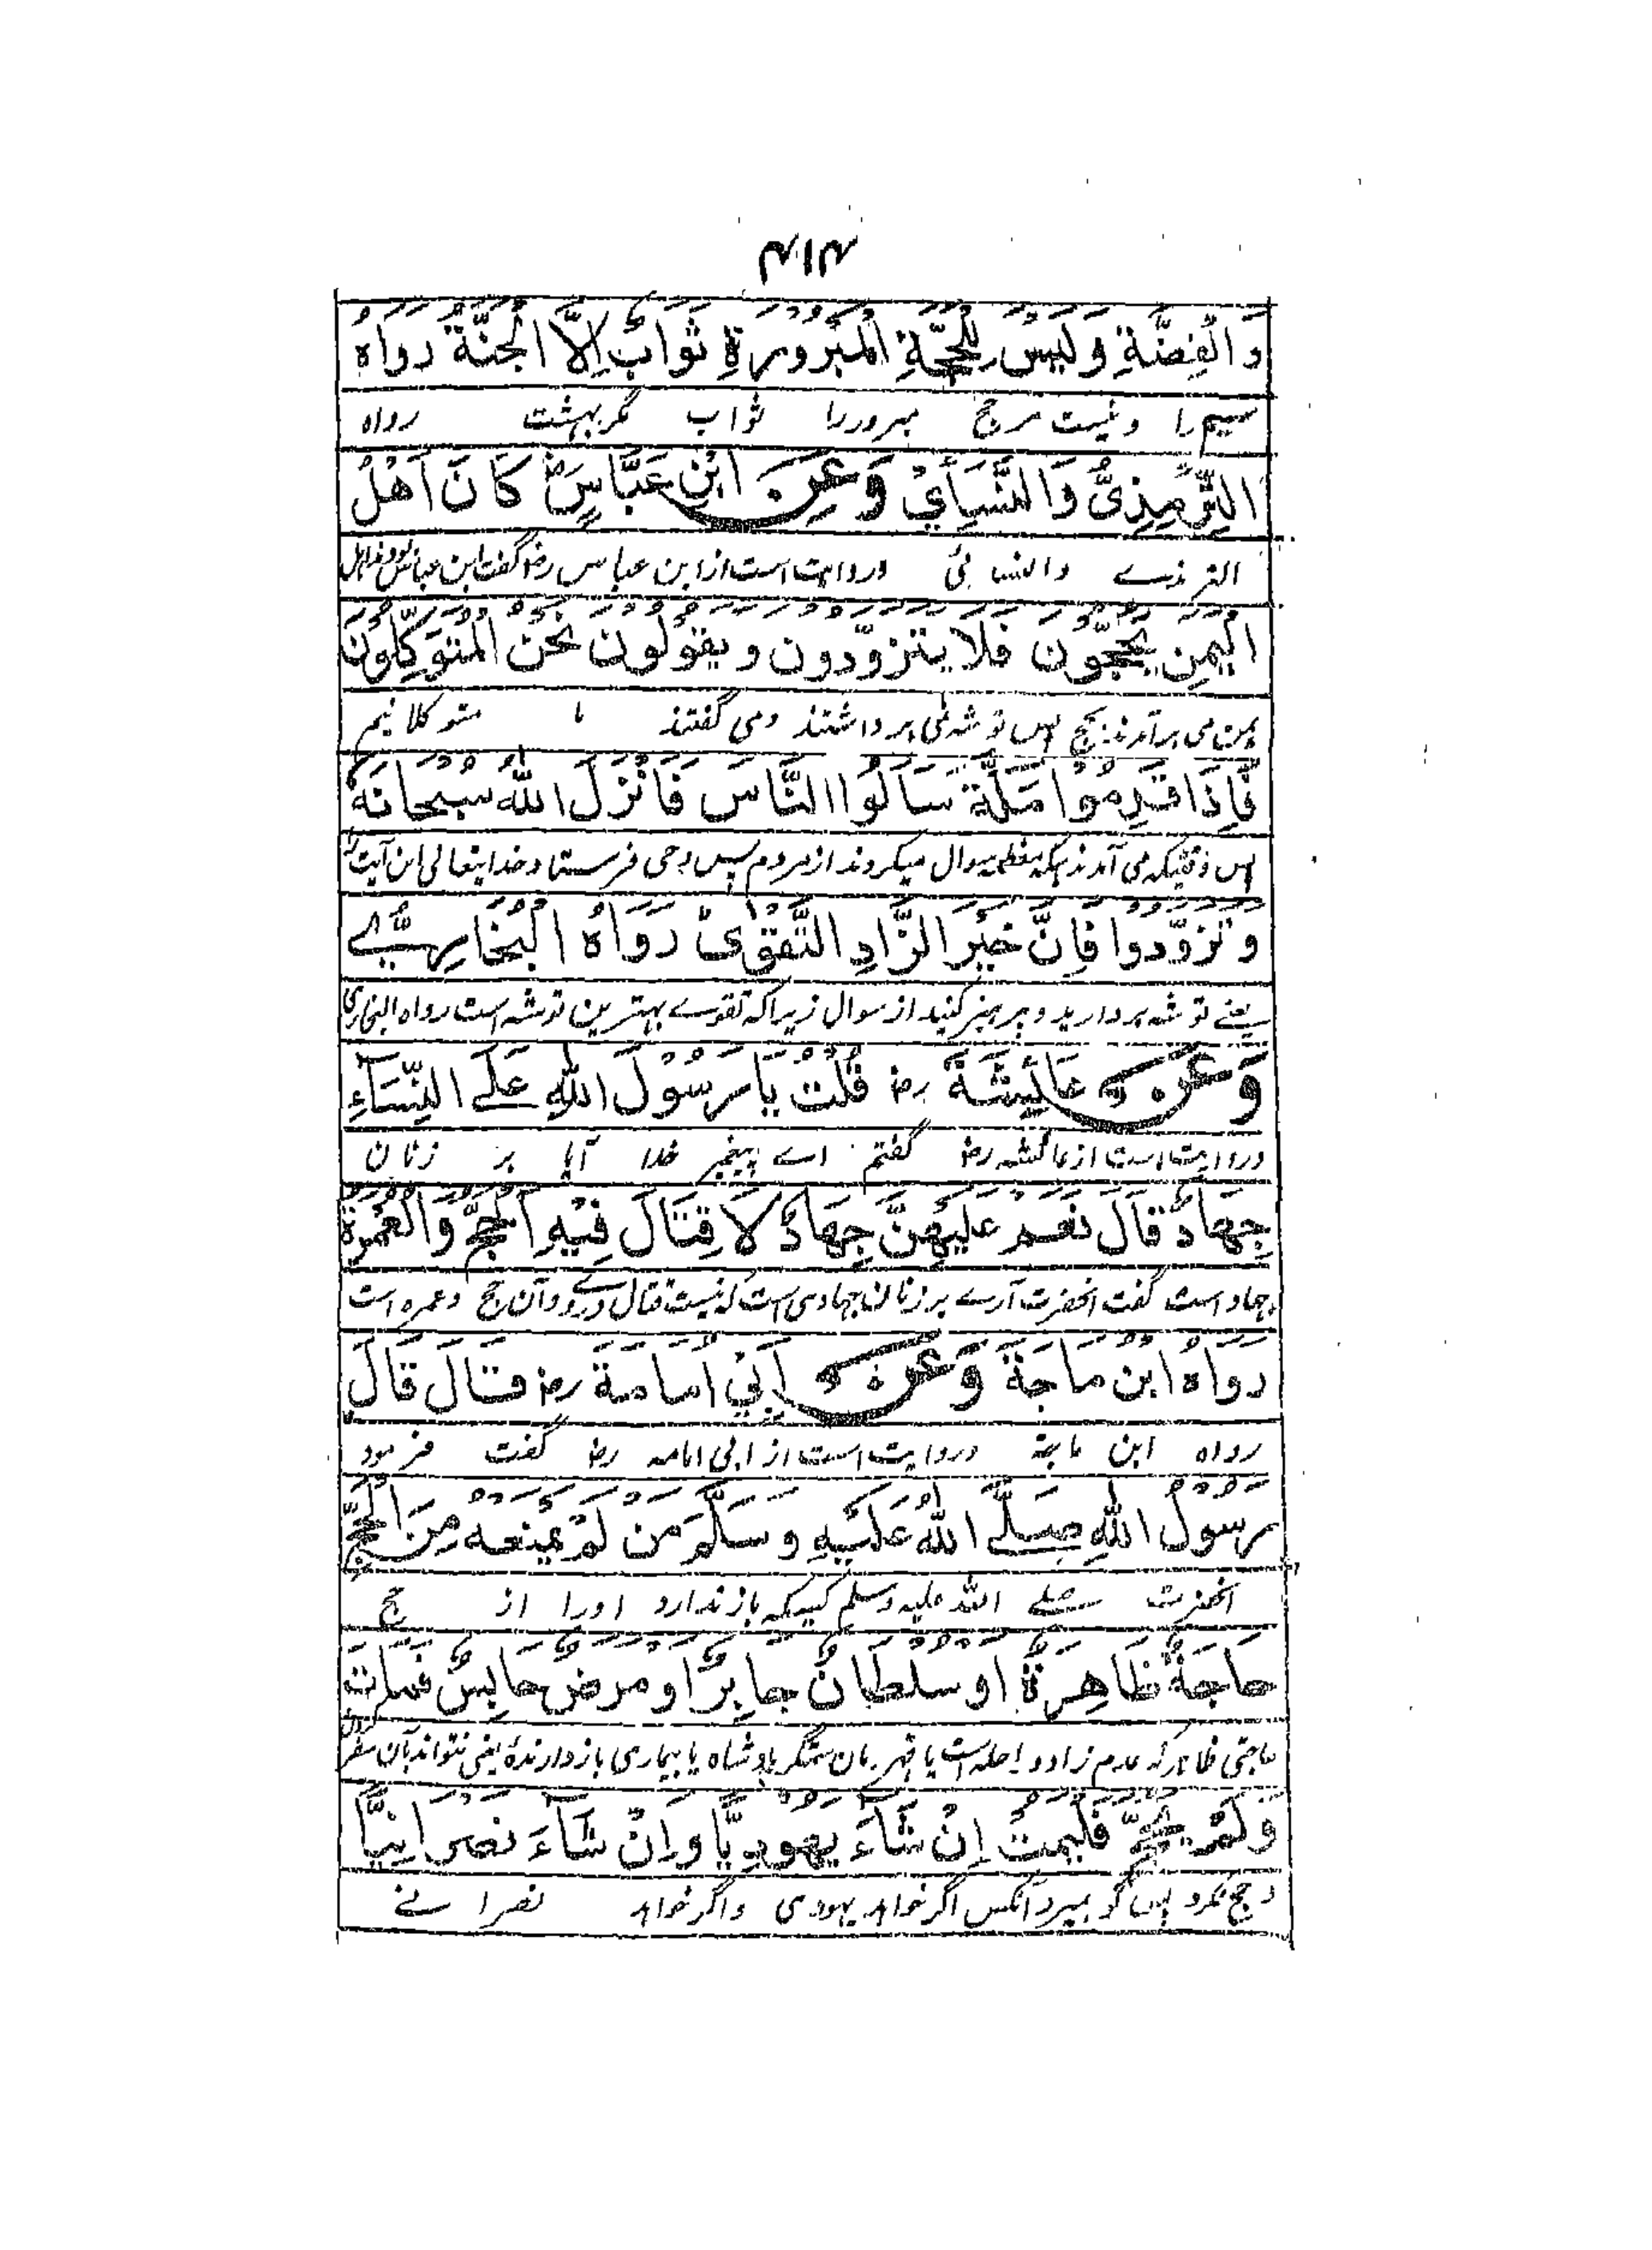 ۴۱۴
وَالْفِضَّةِ وَلَيْسَ لِلْحَجَّةِ الْمَبْرُورَةِ ثَوَابٌ اِلَّا الْجَنَّةُ رَوَاهُ
سیم را ونیست مرحج مبرور را ثواب مگر بهشت رواه
التِّرْمِذِيُّ وَالنَّسَائِيُّ وَعَنِ ابْنِ عَبَّاسٍ رض كَانَ اَهْلُ
الترمذے والنسائی وروایت است از ابن عباس رض گفت ابن عباس بودند اهل
الْيَمَنِ يَحُجُّونَ فَلَا يَتَزَوَّدُونَ وَيَقُوْلُوْنَ نَحْنُ الْمُتَوَكِّلُوْنَ
یمن می برآمدند بحج پس توشه نمی برداشتند ومی گفتند ما متوکلانیم
فَاِذَا قَدِمُوْا مَكَّةَ سَاَلُوا النَّاسَ فَاَنْزَلَ اللهُ سُبْحَانَهُ
پس وقتیکه می آمدند بمکه معظمه سوال میکردند از مردم پس وحی فرستاد خدایتعالی این آیت را
وَتَزَوَّدُوا فَاِنَّ خَيْرَ الزَّادِ التَّقْوٰى رَوَاهُ الْبُخَارِيُّ
یعنے توشه بردارید وپرهیز کنید از سوال زیراکه تقوے بهترین توشه است رواه البخاری
وَعَنْ عَائِشَةَ رض قُلْتُ يَا رَسُوْلَ اللهِ عَلَى النِّسَآءِ
وروایت است از عائشه رض گفتم اے پیغمبر خدا آیا بر زنان
جِهَادٌ قَالَ نَعَمْ عَلَيْهِنَّ جِهَادٌ لَا قِتَالَ فِيْهِ الْحَجُّ وَالْعُمْرَةُ
جهاد است گفت آنحضرت آرے بر زنان جهادی است که نیست قتال درو وآن حج وعمره است
رَوَاهُ ابْنُ مَاجَةَ وَعَنْ اَبِيْ اُمَامَةَ رض قَالَ قَالَ
رواه ابن ماجة وروایت است از ابی امامه رض گفت فرمود
رَسُوْلُ اللهِ صَلَّى اللهُ عَلَيْهِ وَسَلَّمَ مَنْ لَمْ يَمْنَعْهُ مِنَ الْحَجِّ
آنحضرت صلے الله علیه وسلم کسیکه باز ندارد اورا از حج
حَاجَةٌ ظَاهِرَةٌ اَوْ سُلْطَانٌ جَابِرٌ اَوْ مَرَضٌ حَابِسٌ فَمَاتَ
حاجتی ظاهر که عدم زاد و راحله است یا قهرمان ستمگر بادشاه یا بیماری بازدارنده یعنی نتواند بآن سفر کردن
وَلَمْ يَحُجَّ فَلْيَمُتْ اِنْ شَآءَ يَهُوْدِيًّا وَاِنْ شَآءَ نَصْرَانِيًّا
وحج نکرد پس گو بمیرد آنکس اگر خواهد یهودی واگر خواهد نصرانے